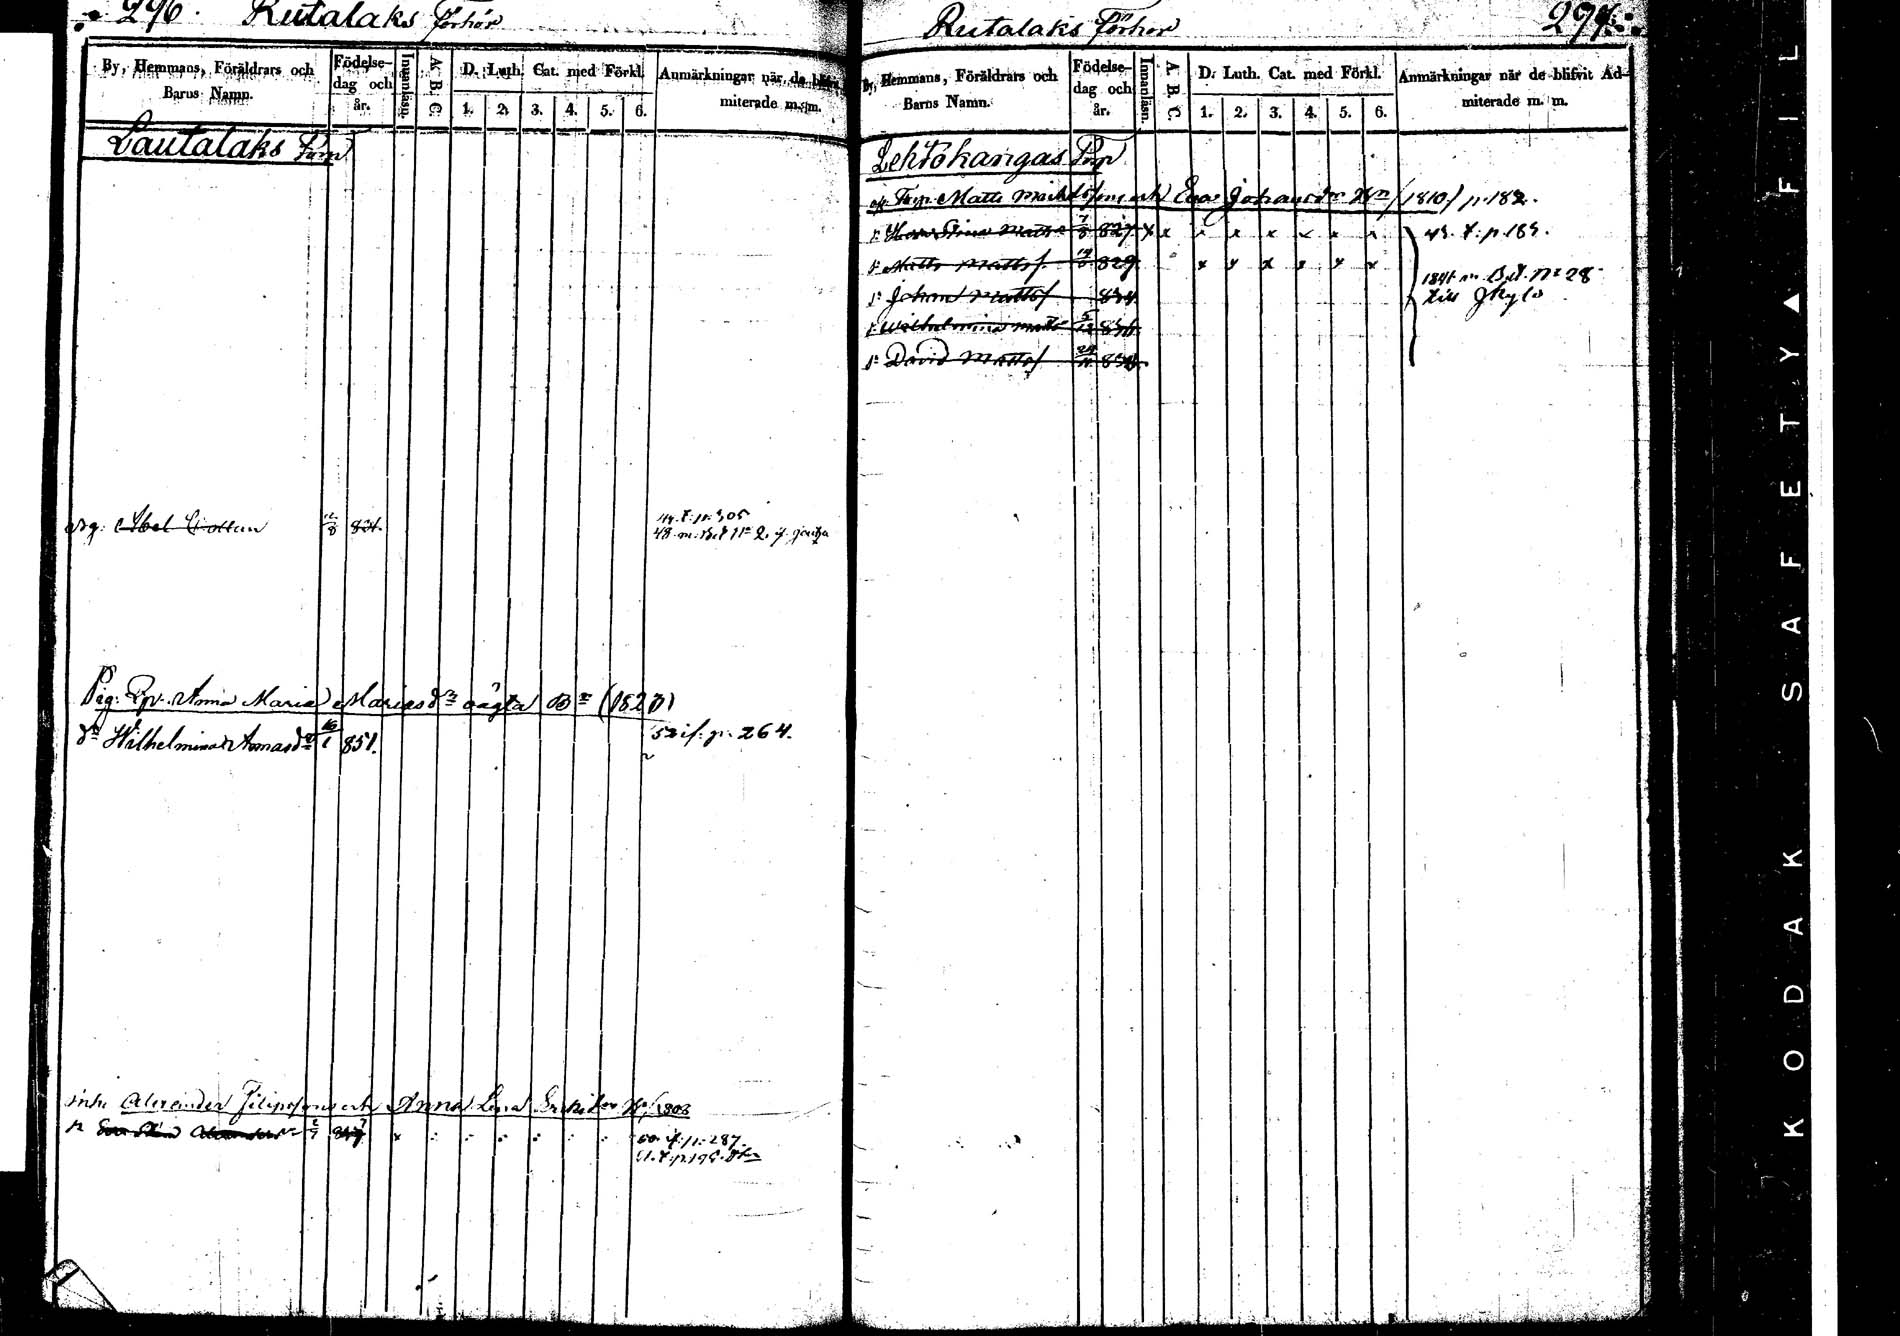 296. Rutalaks Förhör
By, Hemmans, Föräldrars och Barns Namn.
Födelse-dag och år.
Innanläsn.
A. B. C.
D. Luth. Cat. med Förkl.
1. 2. 3. 4. 5. 6.
Anmärkningar när de blifvit
miterade m. m.
Lautalaks Torp
Abel 12/8
44. t. p. 305
48. m. Bet. No 2. t.
Pig. Anna Maria Mariasdr oägta Bn (1827)
dr Wilhelmina Annasdr 16/1 851.
52 if. p. 264.
inh. Alexander Filipsson och Anna Lena Ericsdr Hn 1808
Alexandersdr 2/7 x
50. t. p. 287.
51. t. p. 196.
Rutalaks Förhör 297.
By, Hemmans, Föräldrars och
Barns Namn.
Födelse-dag och år.
Innanläsn.
A. B. C.
D. Luth. Cat. med Förkl.
1. 2. 3. 4. 5. 6.
Anmärkningar när de blifvit Ad-
miterade m. m.
Lehtokangas Torp
Torp. Matts Michelsson och Eva Johansdr Hn (1810) p. 182.
Stina Matts 7/8 827 x x x x x x x x 43. t. p. 185.
Matts Mattss. 829 x x x x x x
1841 m. Bet. No 28
till
Johan Mattss. 834
Wilhelmina Matts 836
David Mattss. 24/11
KODAK SAFETY ▲ FIL